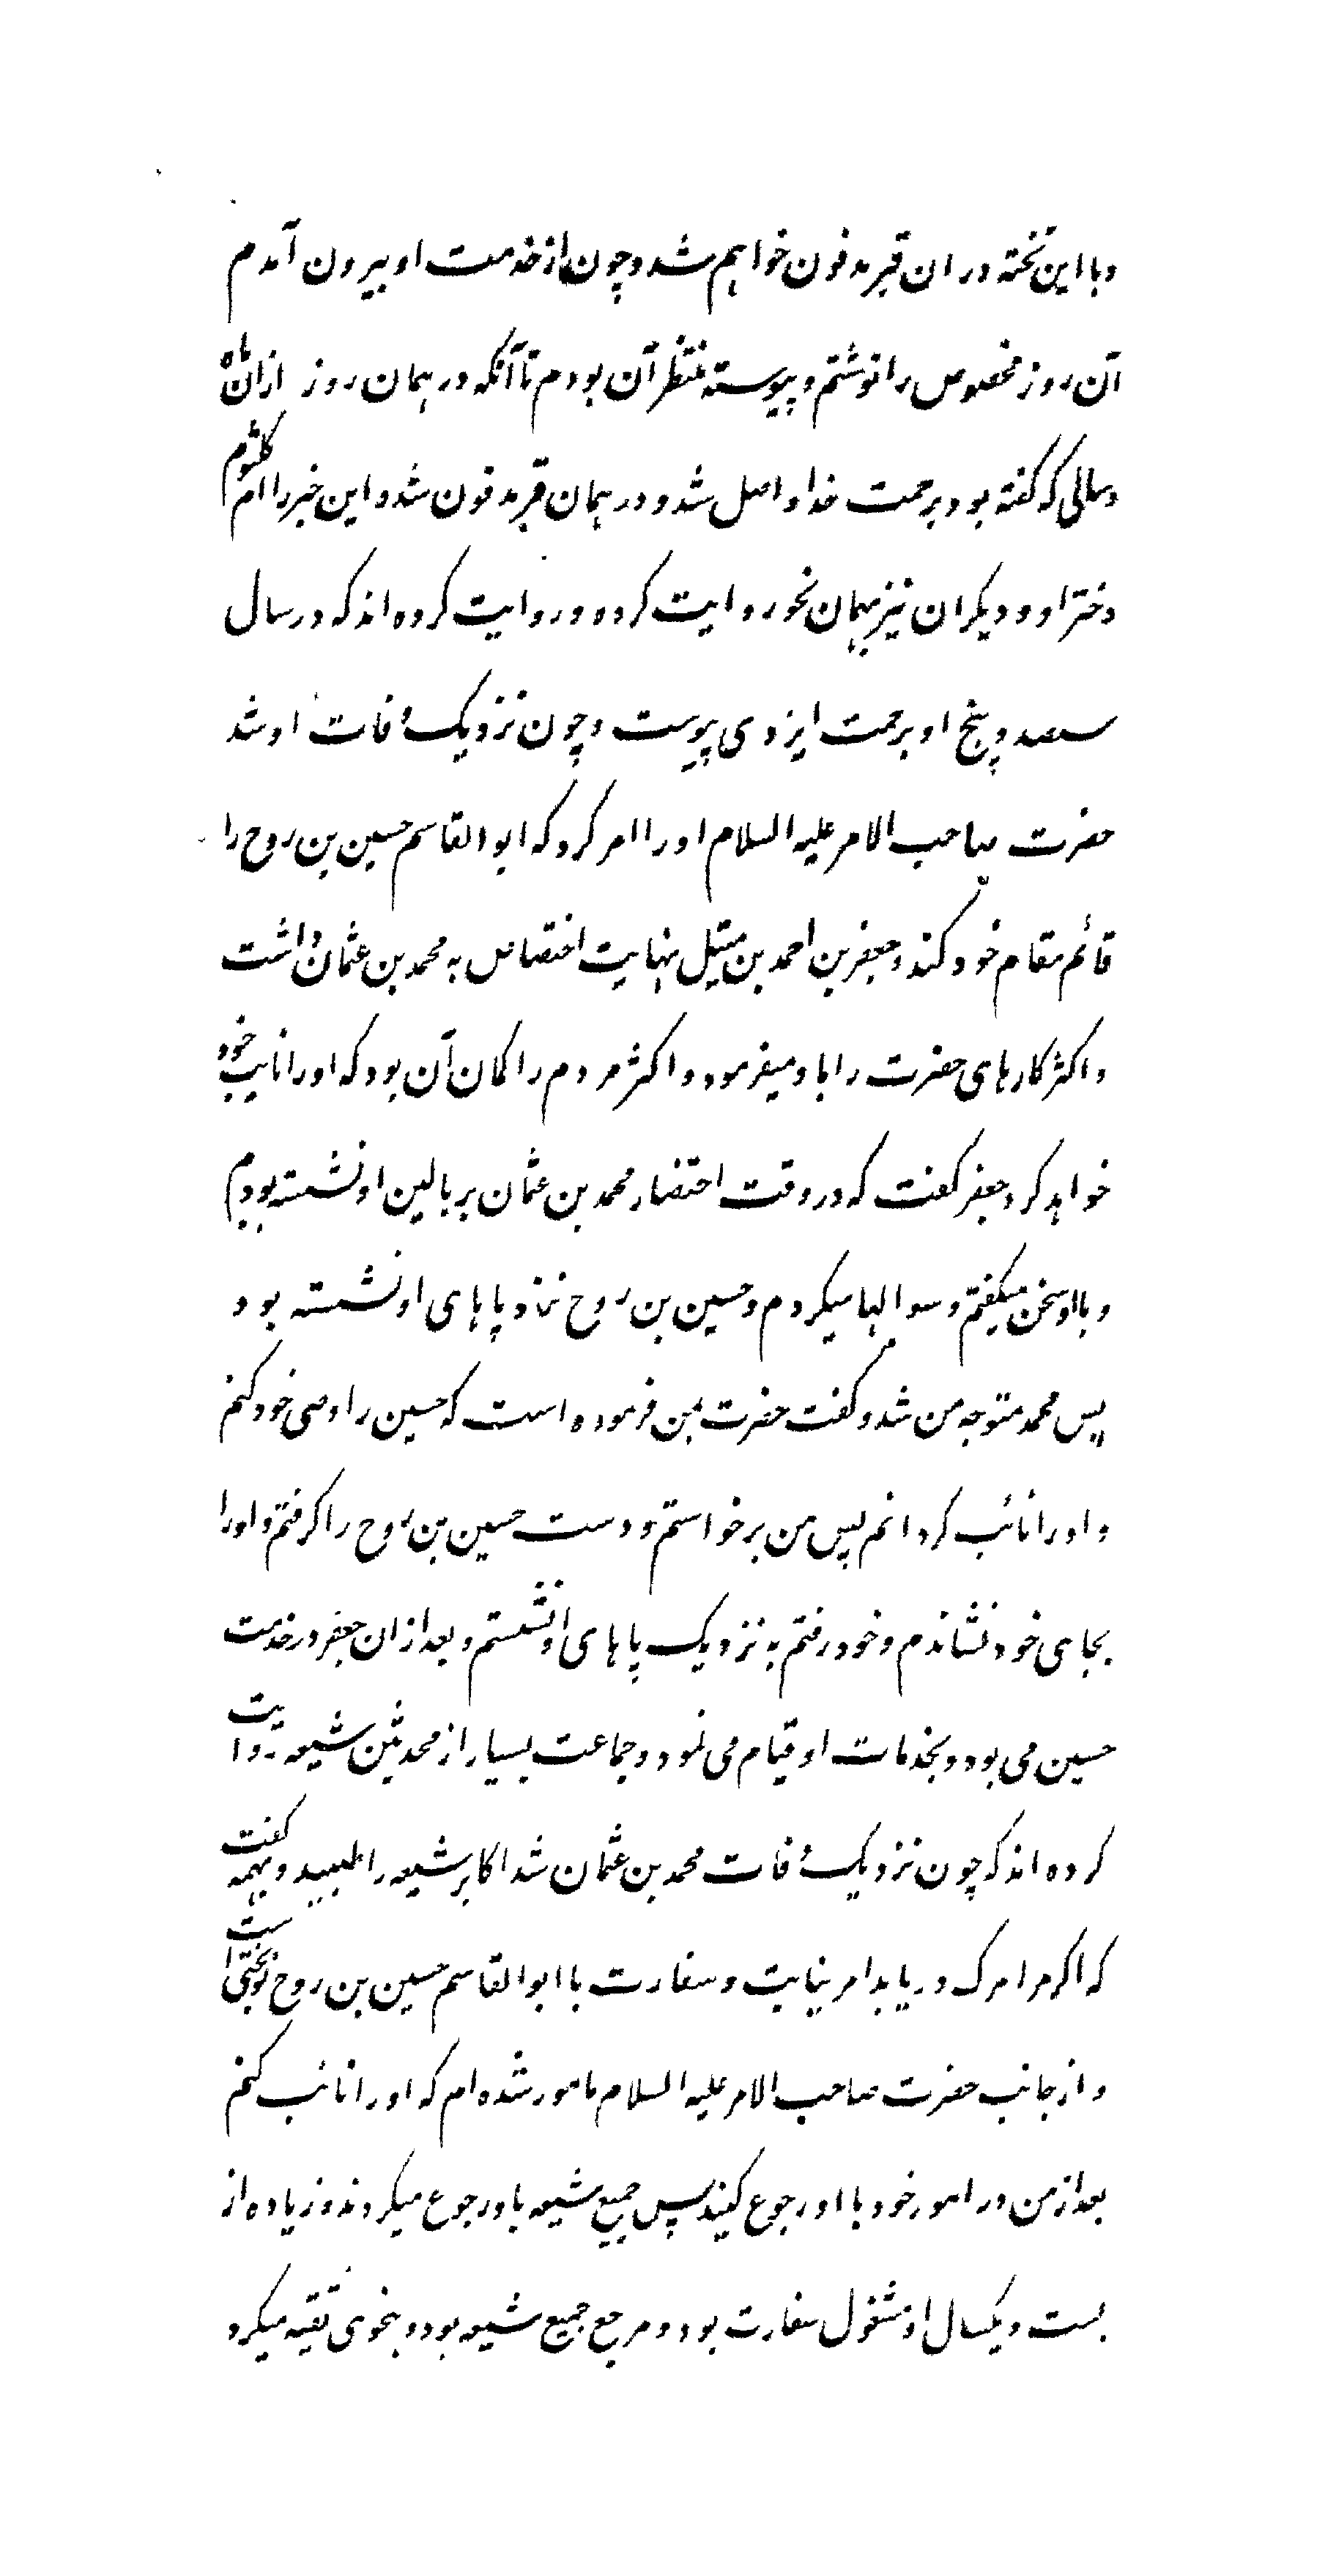 وبا این تخته در ان قبر مدفون خواهم شد و چون از خدمت او بیرون آمدم
آن روز مخصوص را نوشتم و پیوسته منتظر آن بودم تا آنکه در همان روز ازان ماه
وسالی که گفته بود برحمت خدا واصل شد و در همان قبر مدفون شد و این خبر را ام کلثوم
دختر او و دیکران نیز بهمان نحو روایت کرده و روایت کرده اند که در سال
سیصد و پنج او برحمت ایزدی پیوست و چون نزدیک وفات او شد
حضرت صاحب الامر علیه السلام او را امر کرد که ابو القاسم حسین بن روح را
قائم مقام خود کند و جعفر بن احمد بن متیل نهایت اختصاص به محمد بن عثمان داشت
و اکثر کارهای حضرت را باو میفرمود و اکثر مردم را کمان آن بود که او را نایب خود
خواهد کرد جعفر کفت که در وقت احتضار محمد بن عثمان بر بالین او نشسته بودم
و با او سخن میکفتم و سوالها میکردم و حسین بن روح نزد پاهای او نشسته بود
پس محمد متوجه من شد و کفت حضرت بمن فرموده است که حسین را وصی خود کنم
و او را نائب کردانم پس من برخواستم و دست حسین بن روح را کرفتم و او را
بجای خود نشاندم و خود رفتم به نزدیک پاهای او نشستم و بعد از ان جعفر در خدمت
حسین می بود و بخدمات او قیام می نمود و جماعت بسیار از محدثین شیعه روایت
کرده اند که چون نزدیک وفات محمد بن عثمان شد اکابر شیعه را طلبید و بهمه کفت
که اکر مرا مرک دریابد امر نیابت و سفارت با ابو القاسم حسین بن روح نوبختی است
و از جانب حضرت صاحب الامر علیه السلام مامور شده ام که او را نائب کنم
بعد از من در امور خود با او رجوع کنید پس جمیع شیعه باو رجوع میکردند و زیاده از
بست و یکسال او مشغول سفارت بود و مرجع جمیع شیعه بود و بنحوی تقیه میکرد